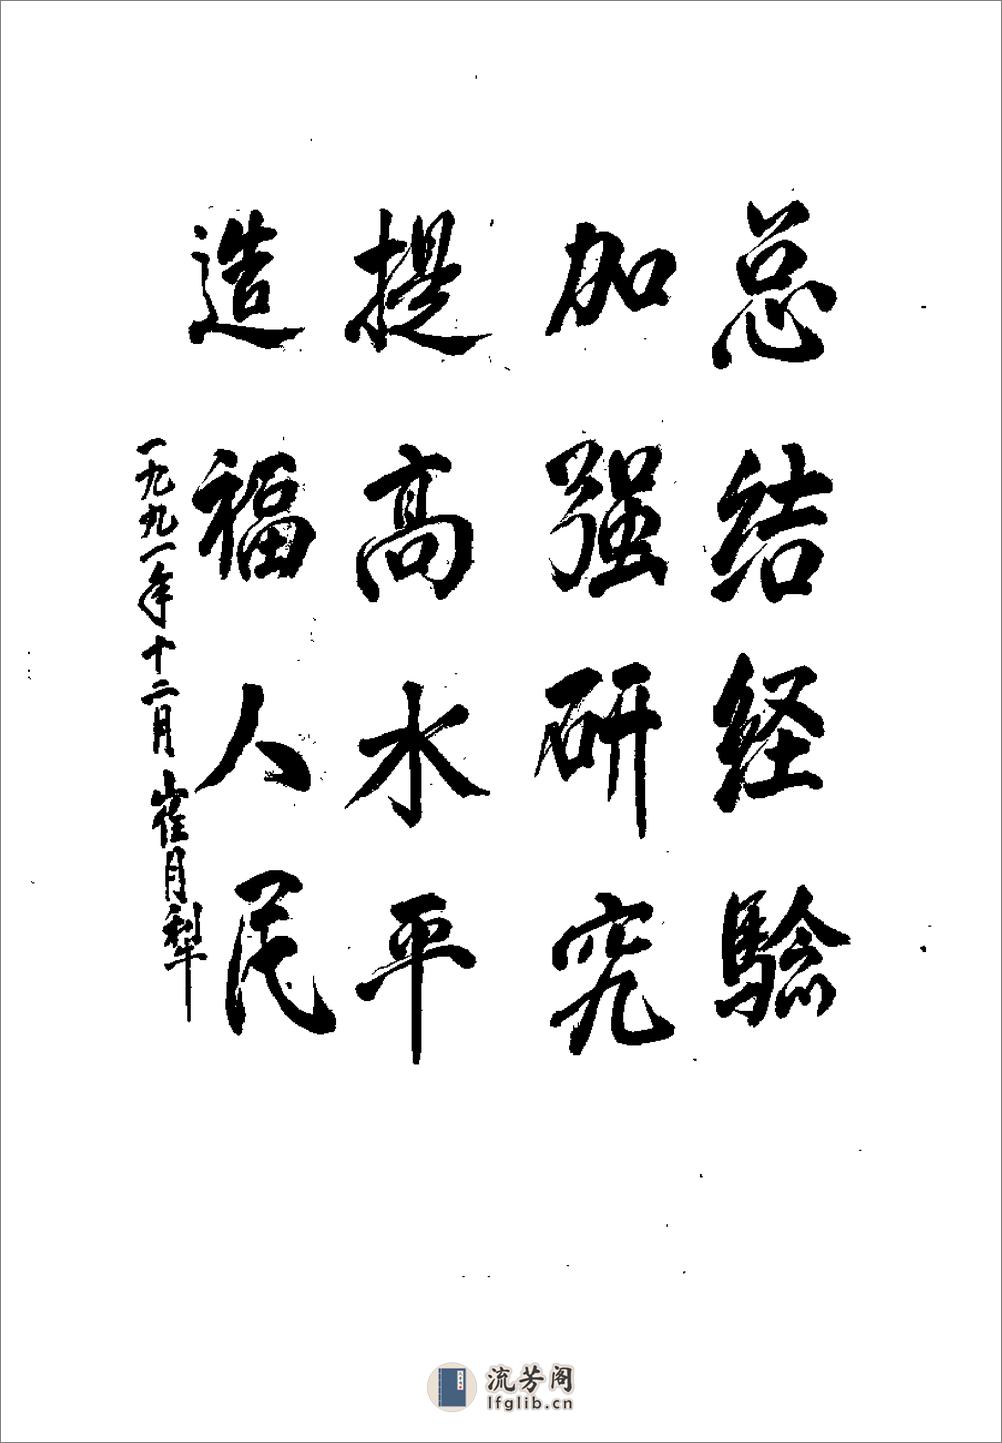 总结经验
加强研究
提高水平
造福人民
一九九一年十二月 崔月犁
流芳阁
lfglib.cn